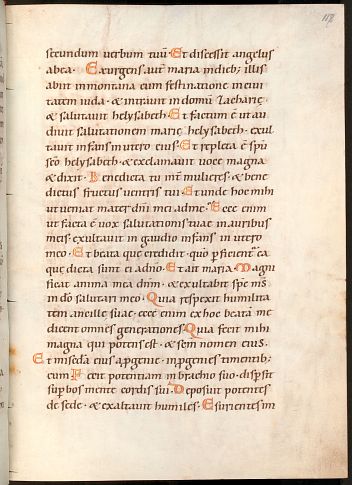 118
secundum uerbum tuũ. Et discessit angelus
ab ea. Exurgens aut̃ maria indieb; illis
abiit in montana cum festinatione in ciui
tatem iuda. & intrauit in domũ Zacharię
& salutauit helysabeth. Et factum ẽ ut au
diuit salutationem marię helysabeth. exul
tauit infans in utero eius. Et repleta ẽ sp̃u
sc̃o helysabeth. & exclamauit uoce magna
& dixit. Benedicta tu int̃ mulieres. & bene
dictus fructus uentris tui. Et unde hoc mihi
ut ueniat mater dñi mei ad me. Ecce enim
ut facta ẽ uox salutationis tuae in auribus
meis. exultauit in gaudio infans in utero
meo. Et beata quę credidit. quõ p̃ficient̃ ea
quę dicta sunt ei a dñõ. Et ait maria. Magni
ficat anima mea dñm. & exultabit sp̃c m̃s
in dõ salutari meo. Quia respexit humilita
tem ancille suae. ecce enim ex hoc beatã me
dicent omnes generationes. Quia fecit mihi
magna qui potens est. & sc̃m nomen eius.
Et misc̃da eius a p̃genie in p̃genies timentib;
eum. Fecit potentiam in brachio suo. disp̃sit
supbos mente cordis sui. Deposuit potentes
de sede. & exaltauit humiles. Esurientes im